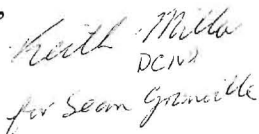 Keith Mills
DCNS
for Sean Granville